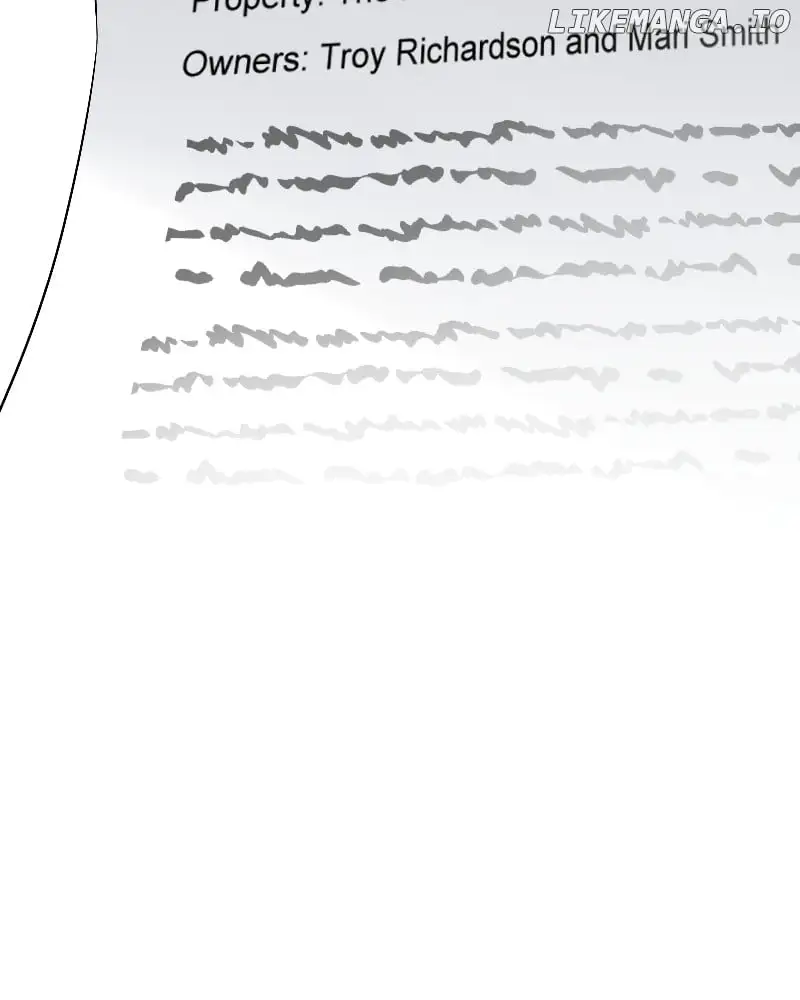 Property: The
LIKEMANGA.IO
Owners: Troy Richardson and Mari Smith